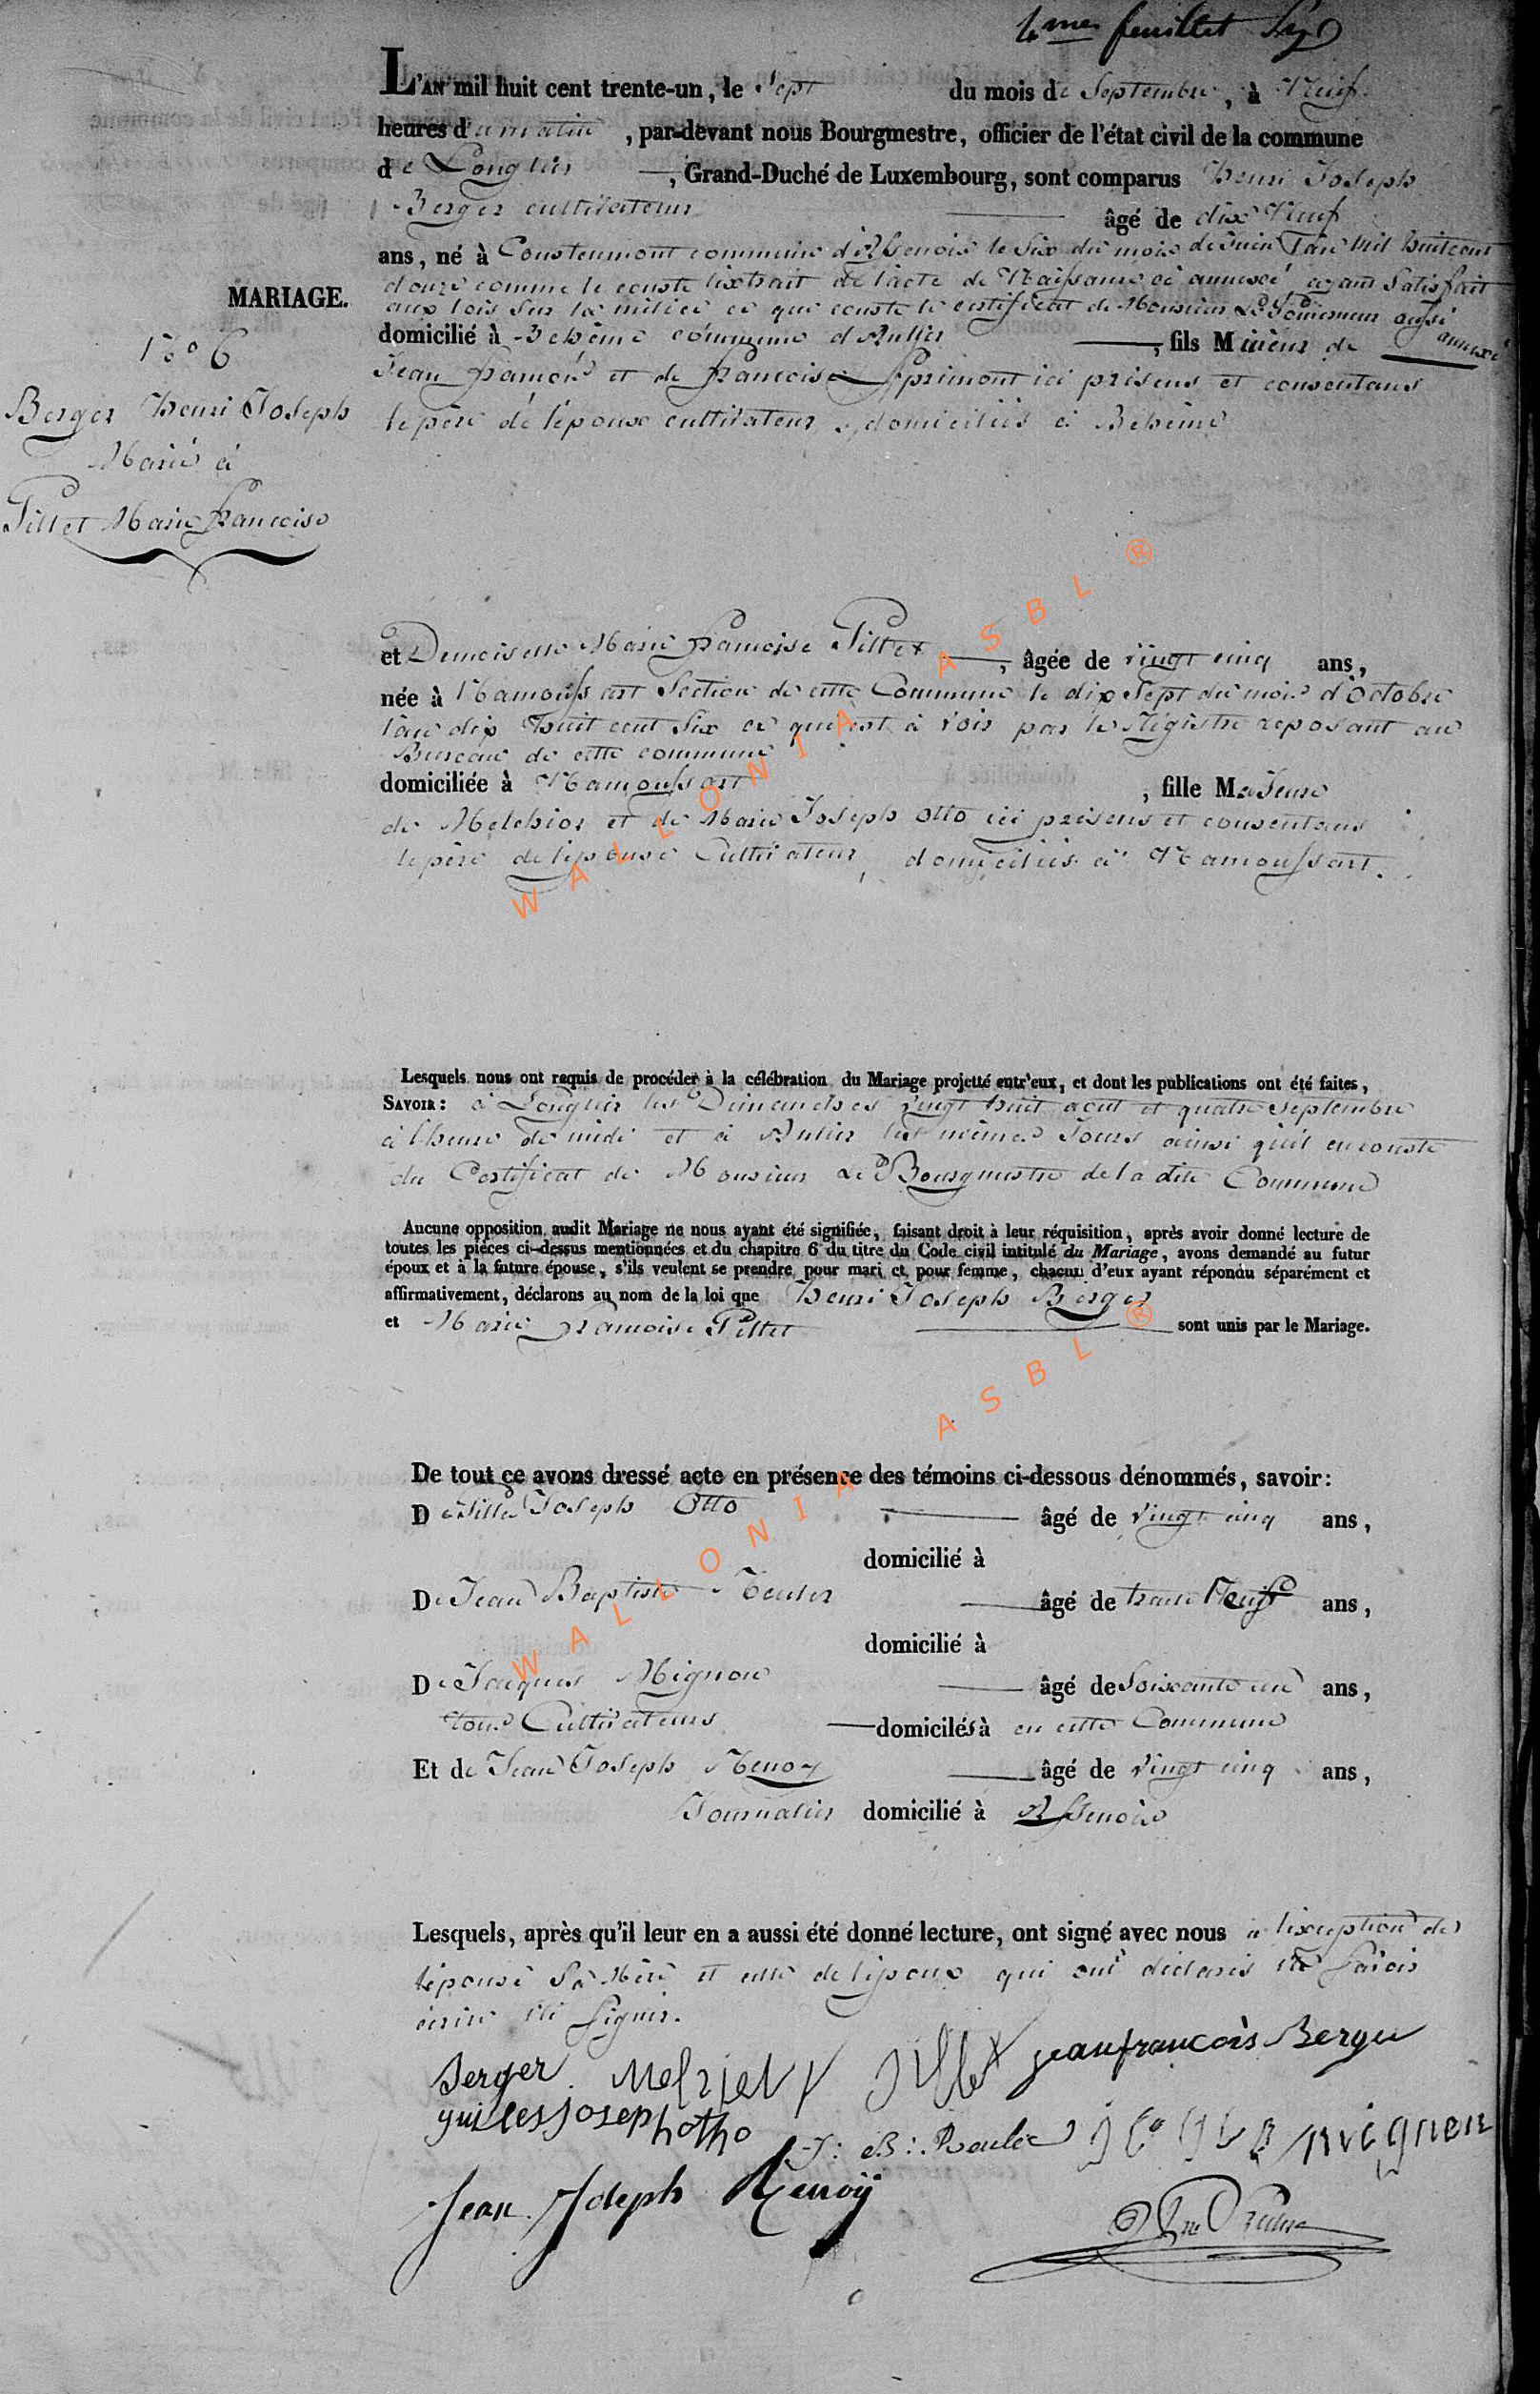 4me feuillet
L'AN mil huit cent trente-un, le Sept du mois de Septembre, à Neuf
heures du matin, par-devant nous Bourgmestre, officier de l'état civil de la commune
de Longlier, Grand-Duché de Luxembourg, sont comparus henri Joseph
Berger cultivateur âgé de dix Neuf
ans, né à commune d'Assenois le Six du mois de Juin l'an Mil huit cent
douze comme le conste l'extrait de l'acte de Naissance ci annexé, ayant Satisfait
MARIAGE.
aux lois sur la milice ce que conste le certificat de Monsieur Le Gouverneur aussi annexé
domicilié à Behême commune d'Anlier, fils Mineur de
Jean francois et de francoise Sprimont ici présens et consentans
le père de l'époux cultivateur, domiciliés à Behême
No 6
Berger henri Joseph
Marié à
Pillet Marie francoise
et Demoiselle Marie francoise Pillet, âgée de vingt cinq ans,
née à Namoussart Section de cette Commune le dix Sept du mois d'Octobre
l'an dix huit cent Six ce qui est à voir par le Régistre reposant au
Bureau de cette commune
domiciliée à Namoussart, fille Majeure
de Melchior et de Marie Joseph Otto ici présens et consentans
le père de l'épouse Cultivateur, domiciliés à Namoussart.
Lesquels nous ont requis de procéder à la célébration du Mariage projetté entr'eux, et dont les publications ont été faites,
SAVOIR: à Longlier les Dimanches vingt huit aout et quatre Septembre
à l'heure de midi et à Anlier les mêmes Jours ainsi qu'il en conste
du Certificat de Monsieur Le Bourgmestre de la dite Commune
Aucune opposition audit Mariage ne nous ayant été signifiée, faisant droit à leur réquisition, après avoir donné lecture de
toutes les pièces ci-dessus mentionnées et du chapitre 6 du titre du Code civil intitulé du Mariage, avons demandé au futur
époux et à la future épouse, s'ils veulent se prendre pour mari et pour femme, chacun d'eux ayant répondu séparément et
affirmativement, déclarons au nom de la loi que henri Joseph Berger
et Marie francoise Pillet sont unis par le Mariage.
De tout ce avons dressé acte en présence des témoins ci-dessous dénommés, savoir:
De Joseph Otto âgé de vingt cinq ans,
domicilié à
De Jean Baptiste âgé de trente Neuf ans,
domicilié à
De Jacques Mignon âgé de Soixante un ans,
tous Cultivateurs domiciliés à en cette Commune
Et de Jean Joseph Renoy âgé de vingt cinq ans,
Journalier domicilié à Assenois
Lesquels, après qu'il leur en a aussi été donné lecture, ont signé avec nous à l'exception de
l'épouse Sa Mère et celle de l'époux qui ont déclarés ne Savoir
écrire ni Signer.
Berger Pillet jean francois Berger
joseph otto
J: B: mignon
Jean Joseph Renoÿ
WALLONIA ASBL ®
WALLONIA ASBL ®